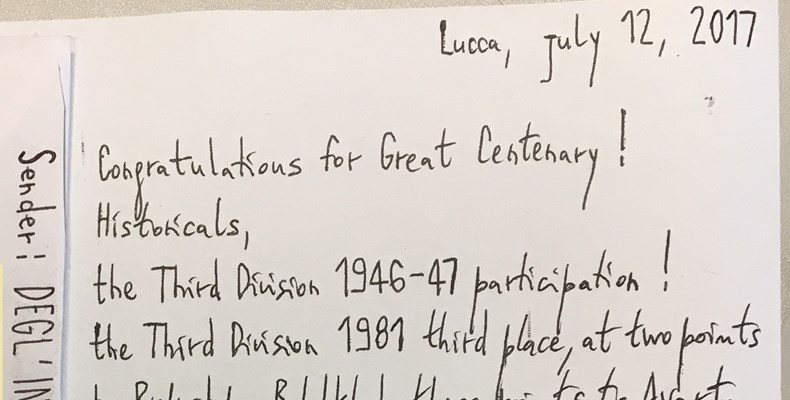 Lucca, july 12, 2017
Congratulations for Great Centenary!
Historicals,
the Third Division 1946-47 participation!
the Third Division 1981 third place, at two points
Sender: DEGL' IN